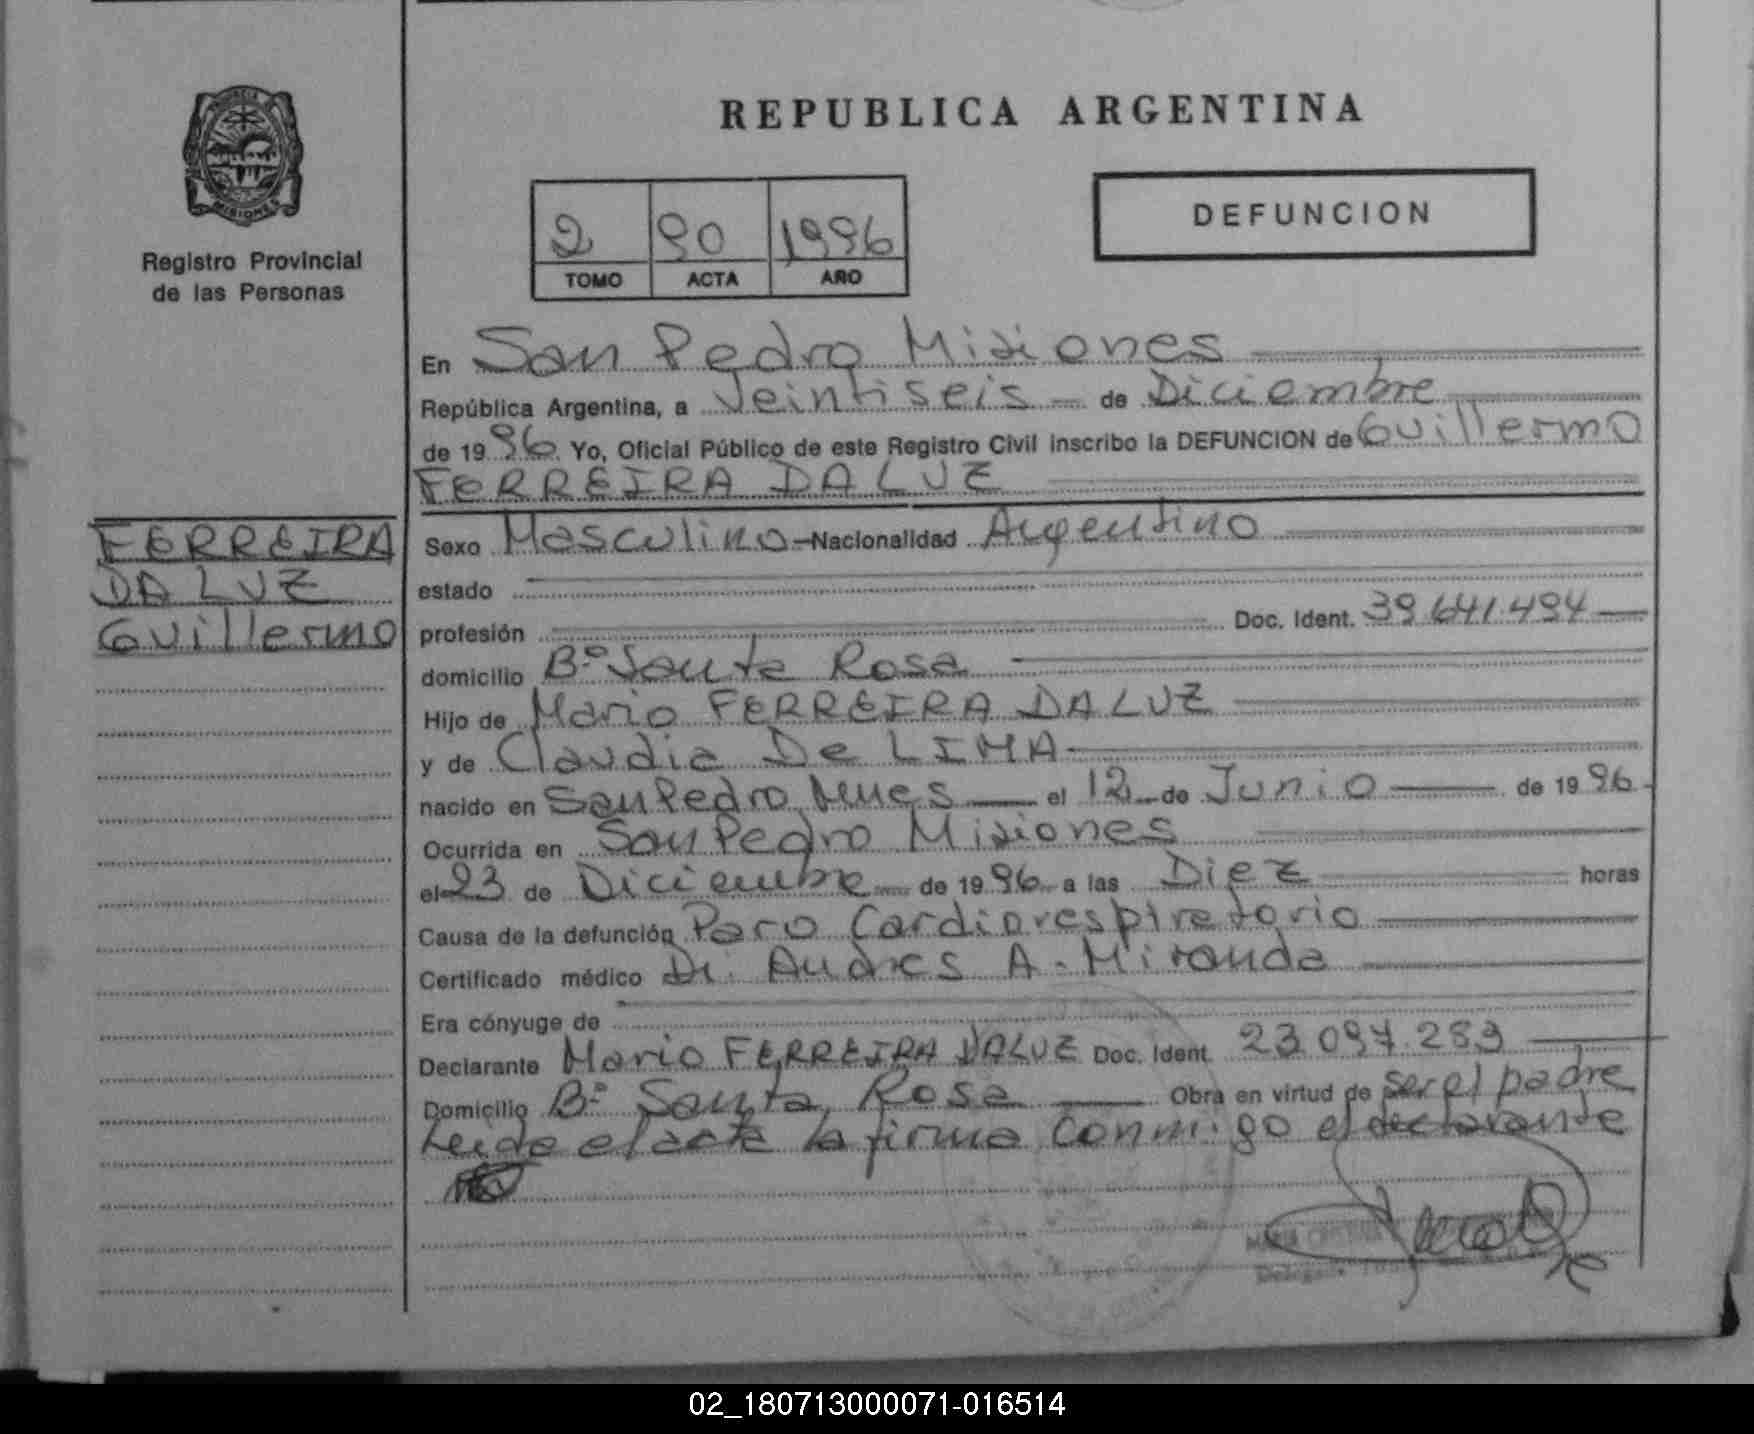 REPUBLICA ARGENTINA
DEFUNCION
2 90 1996
TOMO ACTA AÑO
Registro Provincial
de las Personas
En San Pedro Misiones
República Argentina, a Veintiseis de Diciembre
de 1996 Yo, Oficial Público de este Registro Civil inscribo la DEFUNCION de Guillermo
FERREIRA DA LUZ
FERREIRA
DA LUZ
Guillermo
Sexo Masculino Nacionalidad Argentino
estado
profesión Doc. Ident. 39.641.494
domicilio Bº Santa Rosa
Hijo de Mario FERREIRA DA LUZ
y de Claudia De LIMA
nacido en San Pedro Mnes el 12 de Junio de 1996
Ocurrida en San Pedro Misiones
el 23 de Diciembre de 1996 a las Diez horas
Causa de la defunción Paro Cardiorespiratorio
Certificado médico Dr. Andres A. Miranda
Era cónyuge de
Declarante Mario FERREIRA DALUZ Doc. Ident. 23.097.289
Domicilio Bº Santa Rosa Obra en virtud de ser el padre
Leida el acta la firma conmigo el declarante
02_180713000071-016514